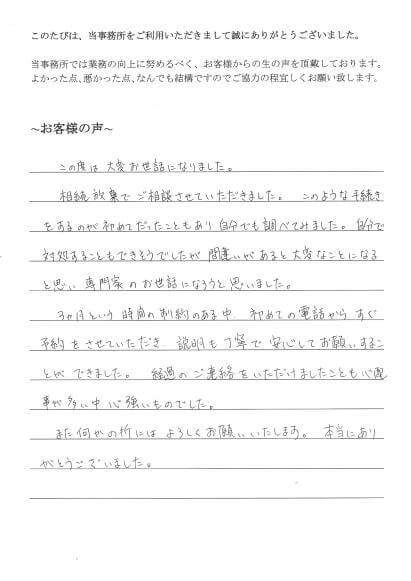 このたびは、当事務所をご利用いただきまして誠にありがとうございました。
当事務所では業務の向上に努めるべく、お客様からの生の声を頂戴しております。
よかった点、悪かった点、なんでも結構ですのでご協力の程宜しくお願い致します。
~お客様の声~
この度は大変お世話になりました。
相続放棄でご相談させていただきました。このような手続き
をするのが初めてだったこともあり自分でも調べてみました。自分で
対処することもできそうでしたが間違いがあると大変なことになる
と思い専門家のお世話になろうと思いました。
3ヶ月という時間の制約のある中 初めての電話からすぐ
予約をさせていただき 説明も丁寧で安心してお願いするこ
とができました。経過のご連絡をいただけましたことも心配
事が多い中心強いものでした。
また何かの折にはよろしくお願いいたします。本当にあり
がとうございました。